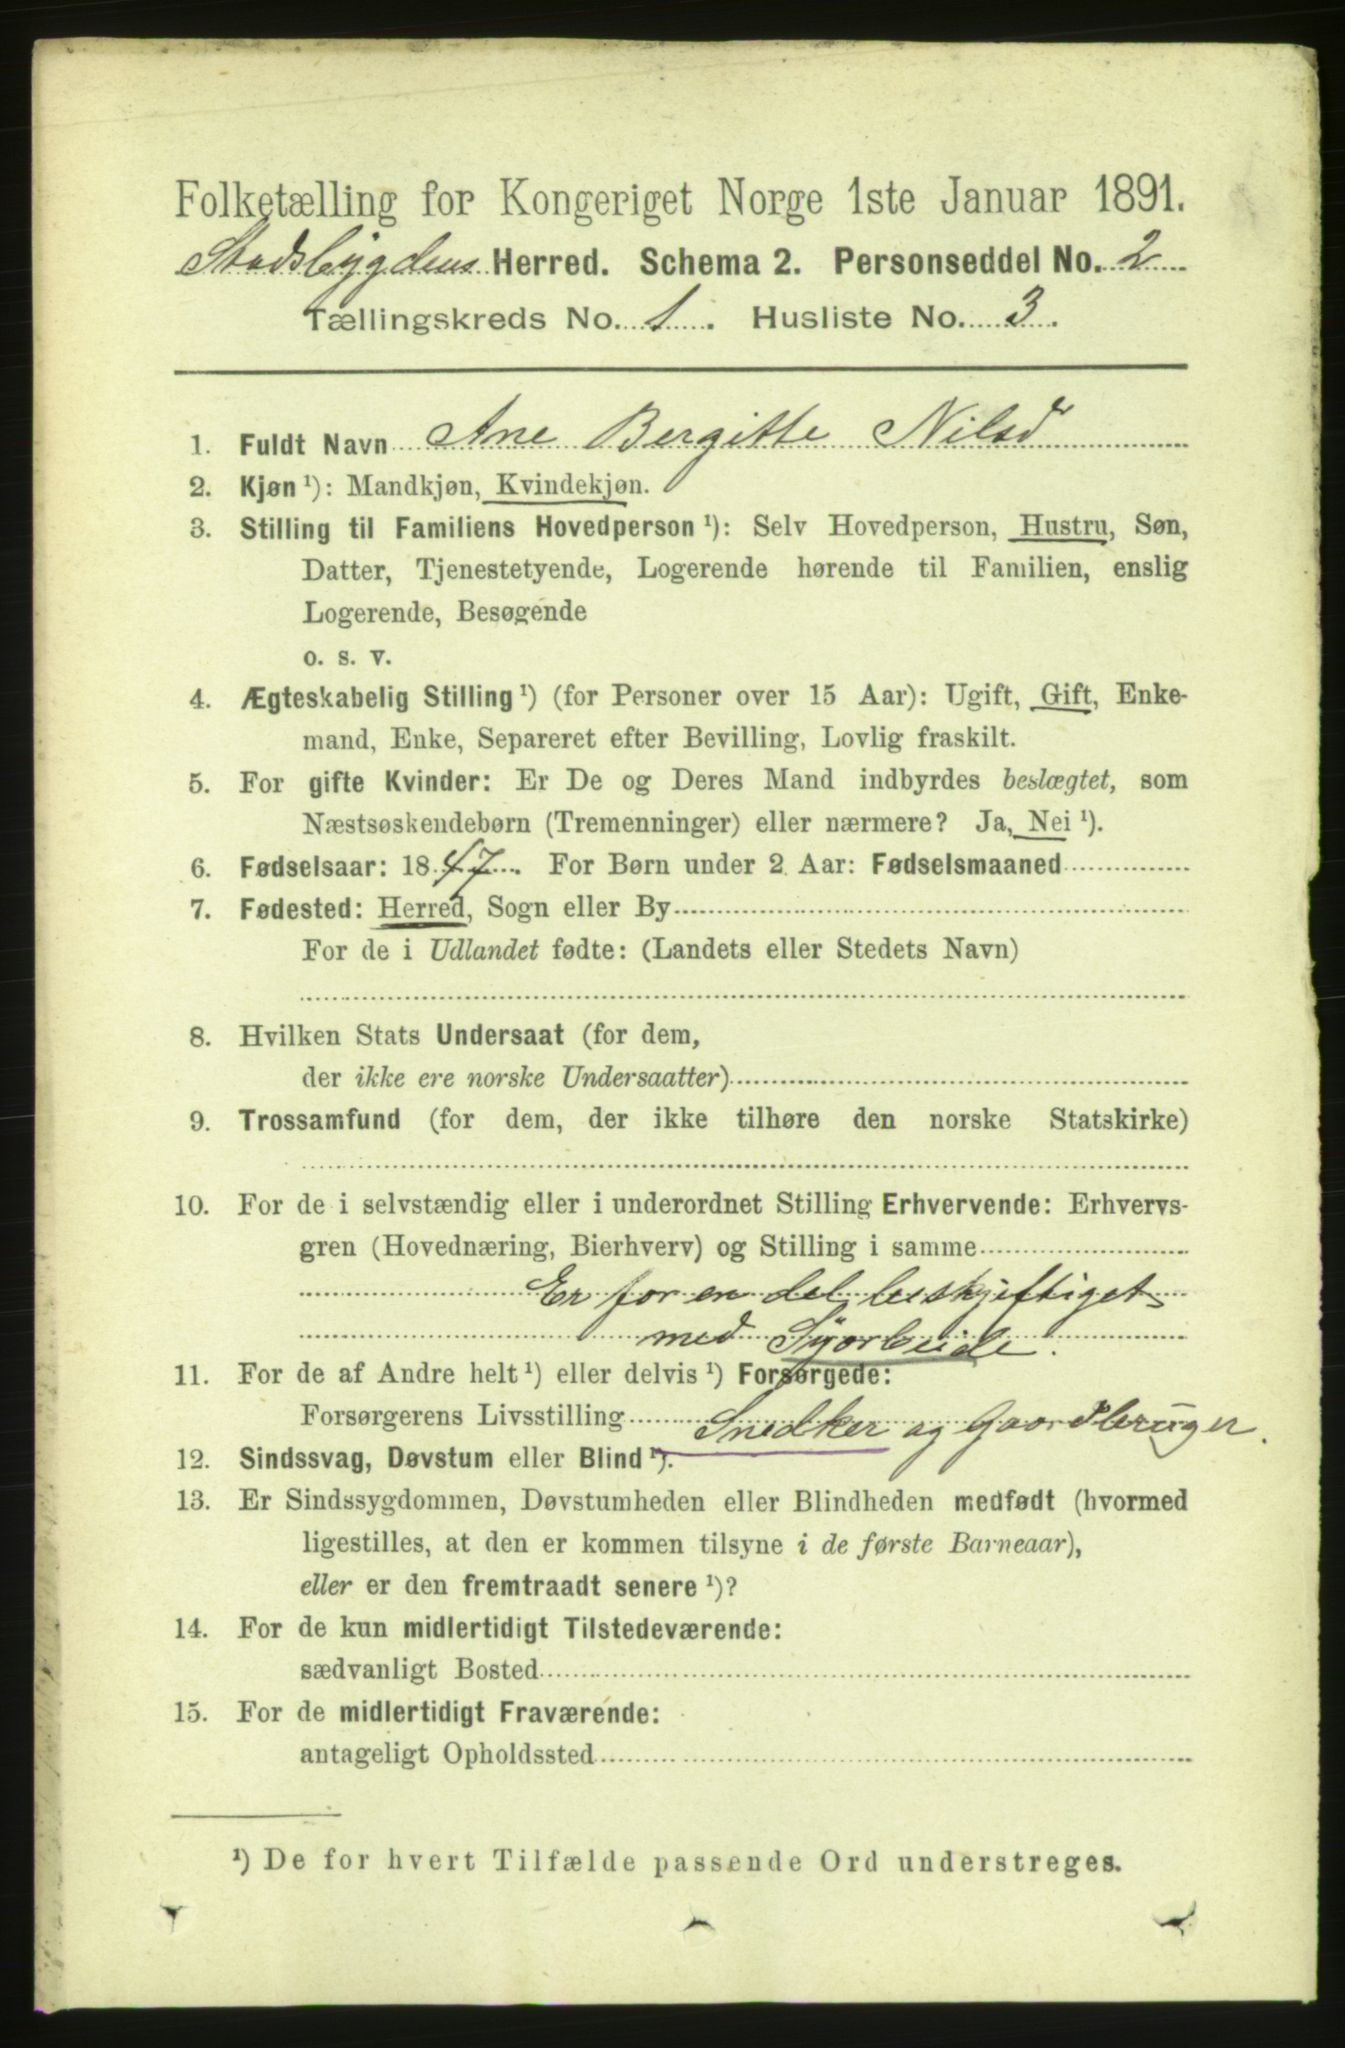 Folketælling for Kongeriget Norge 1ste Januar 1891.
Stadsbygdens Herred. Schema 2. Personseddel No. 2
Tællingskreds No. 1. Husliste No. 3.
1. Fuldt Navn Ane Bergitte Nilsd
2. Kjøn ¹): Mandkjøn, Kvindekjøn.
3. Stilling til Familiens Hovedperson ¹): Selv Hovedperson, Hustru, Søn,
Datter, Tjenestetyende, Logerende hørende til Familien, enslig
Logerende, Besøgende
o. s. v.
4. Ægteskabelig Stilling ¹) (for Personer over 15 Aar): Ugift, Gift, Enke-
mand, Enke, Separeret efter Bevilling, Lovlig fraskilt.
5. For gifte Kvinder: Er De og Deres Mand indbyrdes beslægtet, som
Næstsøskendebørn (Tremenninger) eller nærmere? Ja, Nei ¹).
6. Fødselsaar: 1847. For Børn under 2 Aar: Fødselsmaaned
7. Fødested: Herred, Sogn eller By
For de i Udlandet fødte: (Landets eller Stedets Navn)
8. Hvilken Stats Undersaat (for dem,
der ikke ere norske Undersaatter)
9. Trossamfund (for dem, der ikke tilhøre den norske Statskirke)
10. For de i selvstændig eller i underordnet Stilling Erhvervende: Erhvervs-
gren (Hovednæring, Bierhverv) og Stilling i samme
Er for en del beskjeftiget
med Syarbeide.
11. For de af Andre helt ¹) eller delvis ¹) Forsørgede:
Forsørgerens Livsstilling Snedker og Gaardbruger.
12. Sindssvag, Døvstum eller Blind ¹).
13. Er Sindssygdommen, Døvstumheden eller Blindheden medfødt (hvormed
ligestilles, at den er kommen tilsyne i de første Barneaar),
eller er den fremtraadt senere ¹)?
14. For de kun midlertidigt Tilstedeværende:
sædvanligt Bosted
15. For de midlertidigt Fraværende:
antageligt Opholdssted
¹) De for hvert Tilfælde passende Ord understreges.